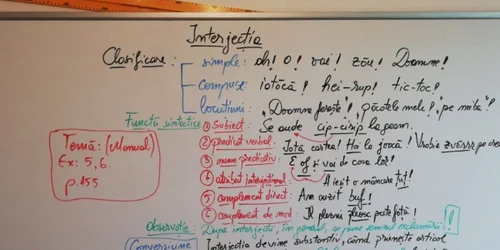 Interjecția
Clasificare: simple: ah! O! vai! zău! Doamne!
compuse: iotăcă! hei-rup! tic-tac!
locuțiuni: „Doamne ferește"! „păcatele mele"! „pe mila"!
Funcții sintactice ① Subiect: Se aude cip-cirip la geam.
② predicat verbal: Iată cartea! Hai la joacă! Vrabia zvârrr pe
③ nume predicativ: E of! și vai de casa lor!
④ atribut interjecțional: A ieșit o mâncare țuț!
⑤ complement direct: Am auzit buf!
⑥ complement de mod: Îl plesni pleosc peste față!
Temă: (Manual)
Ex: 5, 6.
p. 155
Observație: După interjecții, în general, se pune semnul exclamării! !
Conversiune Interjecția devine substantiv, când primește articol